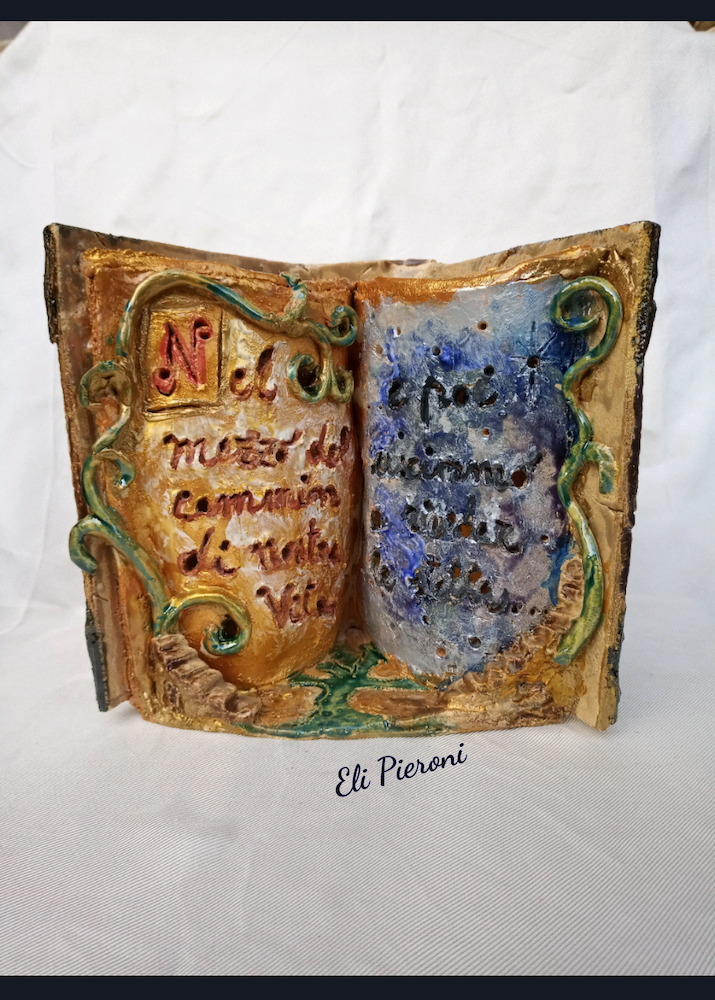 Nel
mezzo del
cammin
di nostra
Vita
e poi
uscimmo
a rivder
le stelle...
Eli Pieroni